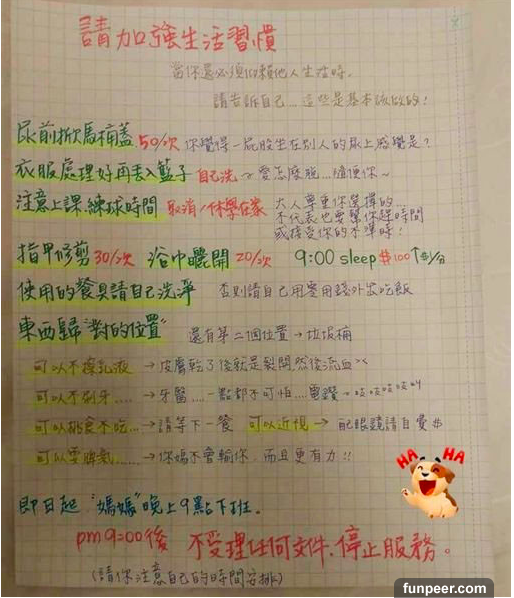 請加強生活習慣
當你還必須仰賴他人生活時,
請告訴自己...這些是基本該做的!
尿前掀馬桶蓋 50/次 你覺得一屁股坐在別人的尿上感覺是?
衣服處理好再丟入籃子 自己洗 → 愛怎麼脫...隨便你~
注意上課、練球時間 取消/休學在家 大人尊重你選擇的...
不代表也要幫你趕時間
或接受你的不準時!
指甲修剪 30/次 浴巾曬開 20/次 9:00 sleep $100↑/分
使用的餐具請自己洗淨 否則請自己用零用錢外出吃飯
東西歸"對的位置" 還有第二個位置→垃圾桶
可以不擦乳液 → 皮膚乾了後就是裂開然後流血××
可以不刷牙.....→牙醫....一點都不可怕...電鑽~吱吱吱吱叫
可以挑食不吃...→請等下一餐 可以近視→ 配眼鏡請自費$
可以耍脾氣......→ 你媽不會輸你,而且更有力!!
HA HA
即日起 "媽媽"晚上9點下班。
pm 9:00後 不受理任何文件,停止服務。
(請你注意自己的時間安排)
funpeer.com